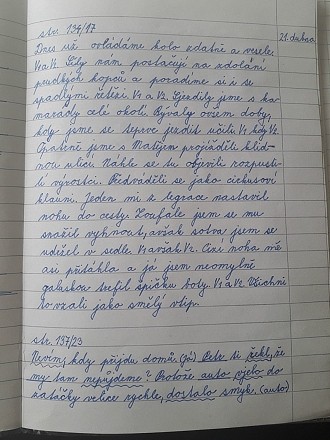 str. 134/17
21. dubna
Dnes už ovládáme kolo zdatně a vesele.
V1 a V2. Síly nám postačují na zdolání
prudkých kopců a poradíme si i se
spadlými řetězi. V1 a V2. Sjezdily jsme s ka-
marády celé okolí. Bývaly ovšem doby,
kdy jsme se teprve jezdit učili. V1, kdy V2.
Opatrně jsme s Matějem projížděli klid-
nou ulicí. Náhle se tu objevili rozpusti-
lí výrostci. Předváděli se jako cirkusoví
klauni. Jeden mi z legrace nastavil
nohu do cesty. Zoufale jsem se mu
snažil vyhnout, avšak sotva jsem se
udržel v sedle. V1 avšak V2. Cizí noha mě
asi přitáhla a já jsem neomylně
galuskou trefil špičku boty. V1 a V2. Všichni
to vzali jako smělý vtip.
str. 137/23
Nevím, kdy přijdu domů. (já) Petr ti řekl, že
my tam nepůjdeme? Protože auto vjelo do
zatáčky velice rychle, dostalo smyk. (auto)